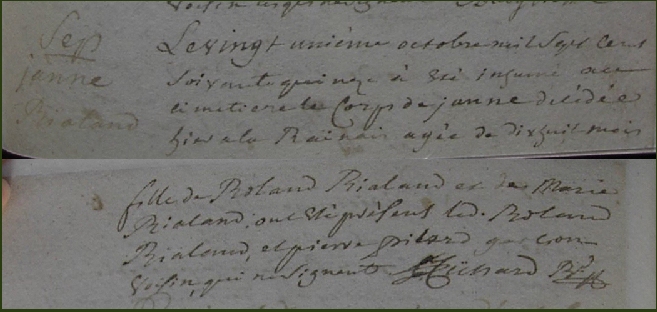 voisin
Sep
janne
Rialand
Le vingt unième octobre mil sept cent
soixante quinze à été inhumé au
cimetiere le Corps de janne décédée
hier a la Rainais agée de dixhuit mois
fille de Roland Rialand et de Marie
Rialand, ont été présent led. Roland
Rialand, et pierre pitard garcon
voisin, qui ne signent